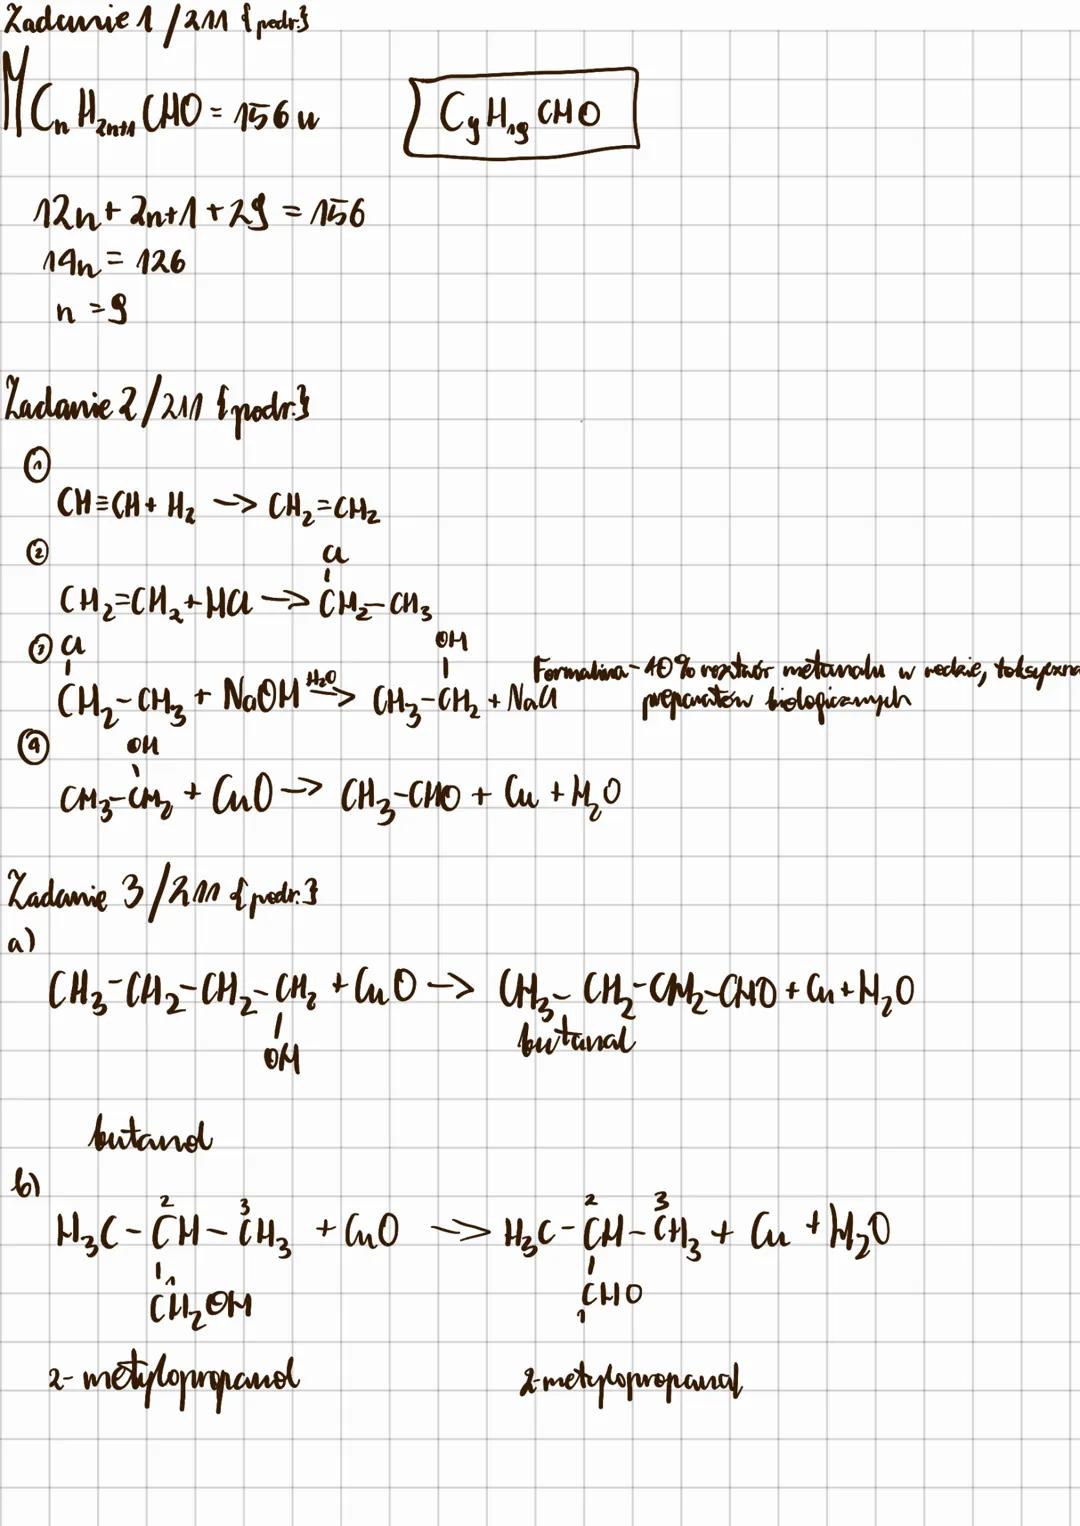 Zadanie 1/211 {podr.}
M CₙH₂ₙ₊₁CHO = 156 u
C₉H₁₉CHO
12n + 2n+1 + 29 = 156
14n = 126
n = 9
Zadanie 2/211 {podr.}
①
CH≡CH + H₂ -> CH₂=CH₂
②
Cl
CH₂=CH₂ + HCl -> CH₂-CH₃
③ Cl
OH
CH₂-CH₃ + NaOH H₂O -> CH₃-CH₂ + NaCl
Formalina - 40% roztwór metanalu w wodzie, toksyczna
preparatów biologicznych
④ OH
CH₃-CH₂ + CuO -> CH₃-CHO + Cu + H₂O
Zadanie 3/211 {podr.}
a)
CH₃-CH₂-CH₂-CH₂ + CuO -> CH₃-CH₂-CH₂-CHO + Cu + H₂O
OH
butanal
butanol
b)
2 3 2 3
H₃C-CH-CH₃ + CuO -> H₃C-CH-CH₃ + Cu + H₂O
1
CH₂OH CHO
1
2-metylopropanol 2-metylopropanal